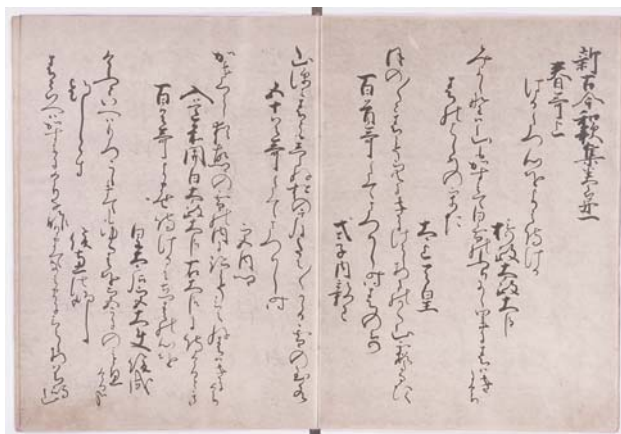 新古今和歌集巻第一
春哥上
はるたつ心をよみ侍ける
摂政太政大臣
みよし野は山もかすみて白雪のふりにし里に春はきにけり
春のはしめのうた
太上天皇
ほの／＼と春こそ空にきにけらしあまのかく山霞たなひく
百首哥たてまつりし時春の哥
式子内親王
山深み春ともしらぬ松の戸にたえ／＼かゝる雪の玉水
五十首哥たてまつりし時
宮内卿
かきくらし猶ふる里の雪の内に跡こそ見えね春はきにけり
入道前関白太政大臣右大臣に侍ける時
百首哥よませ侍けるに立春の心を
皇太后宮大夫俊成
けふといへはもろこしまても行春を都にのみと思ける哉
題しらす
俊恵法師
春といへはかすみにけりな昨日まて浪まに見えしあはち嶋山